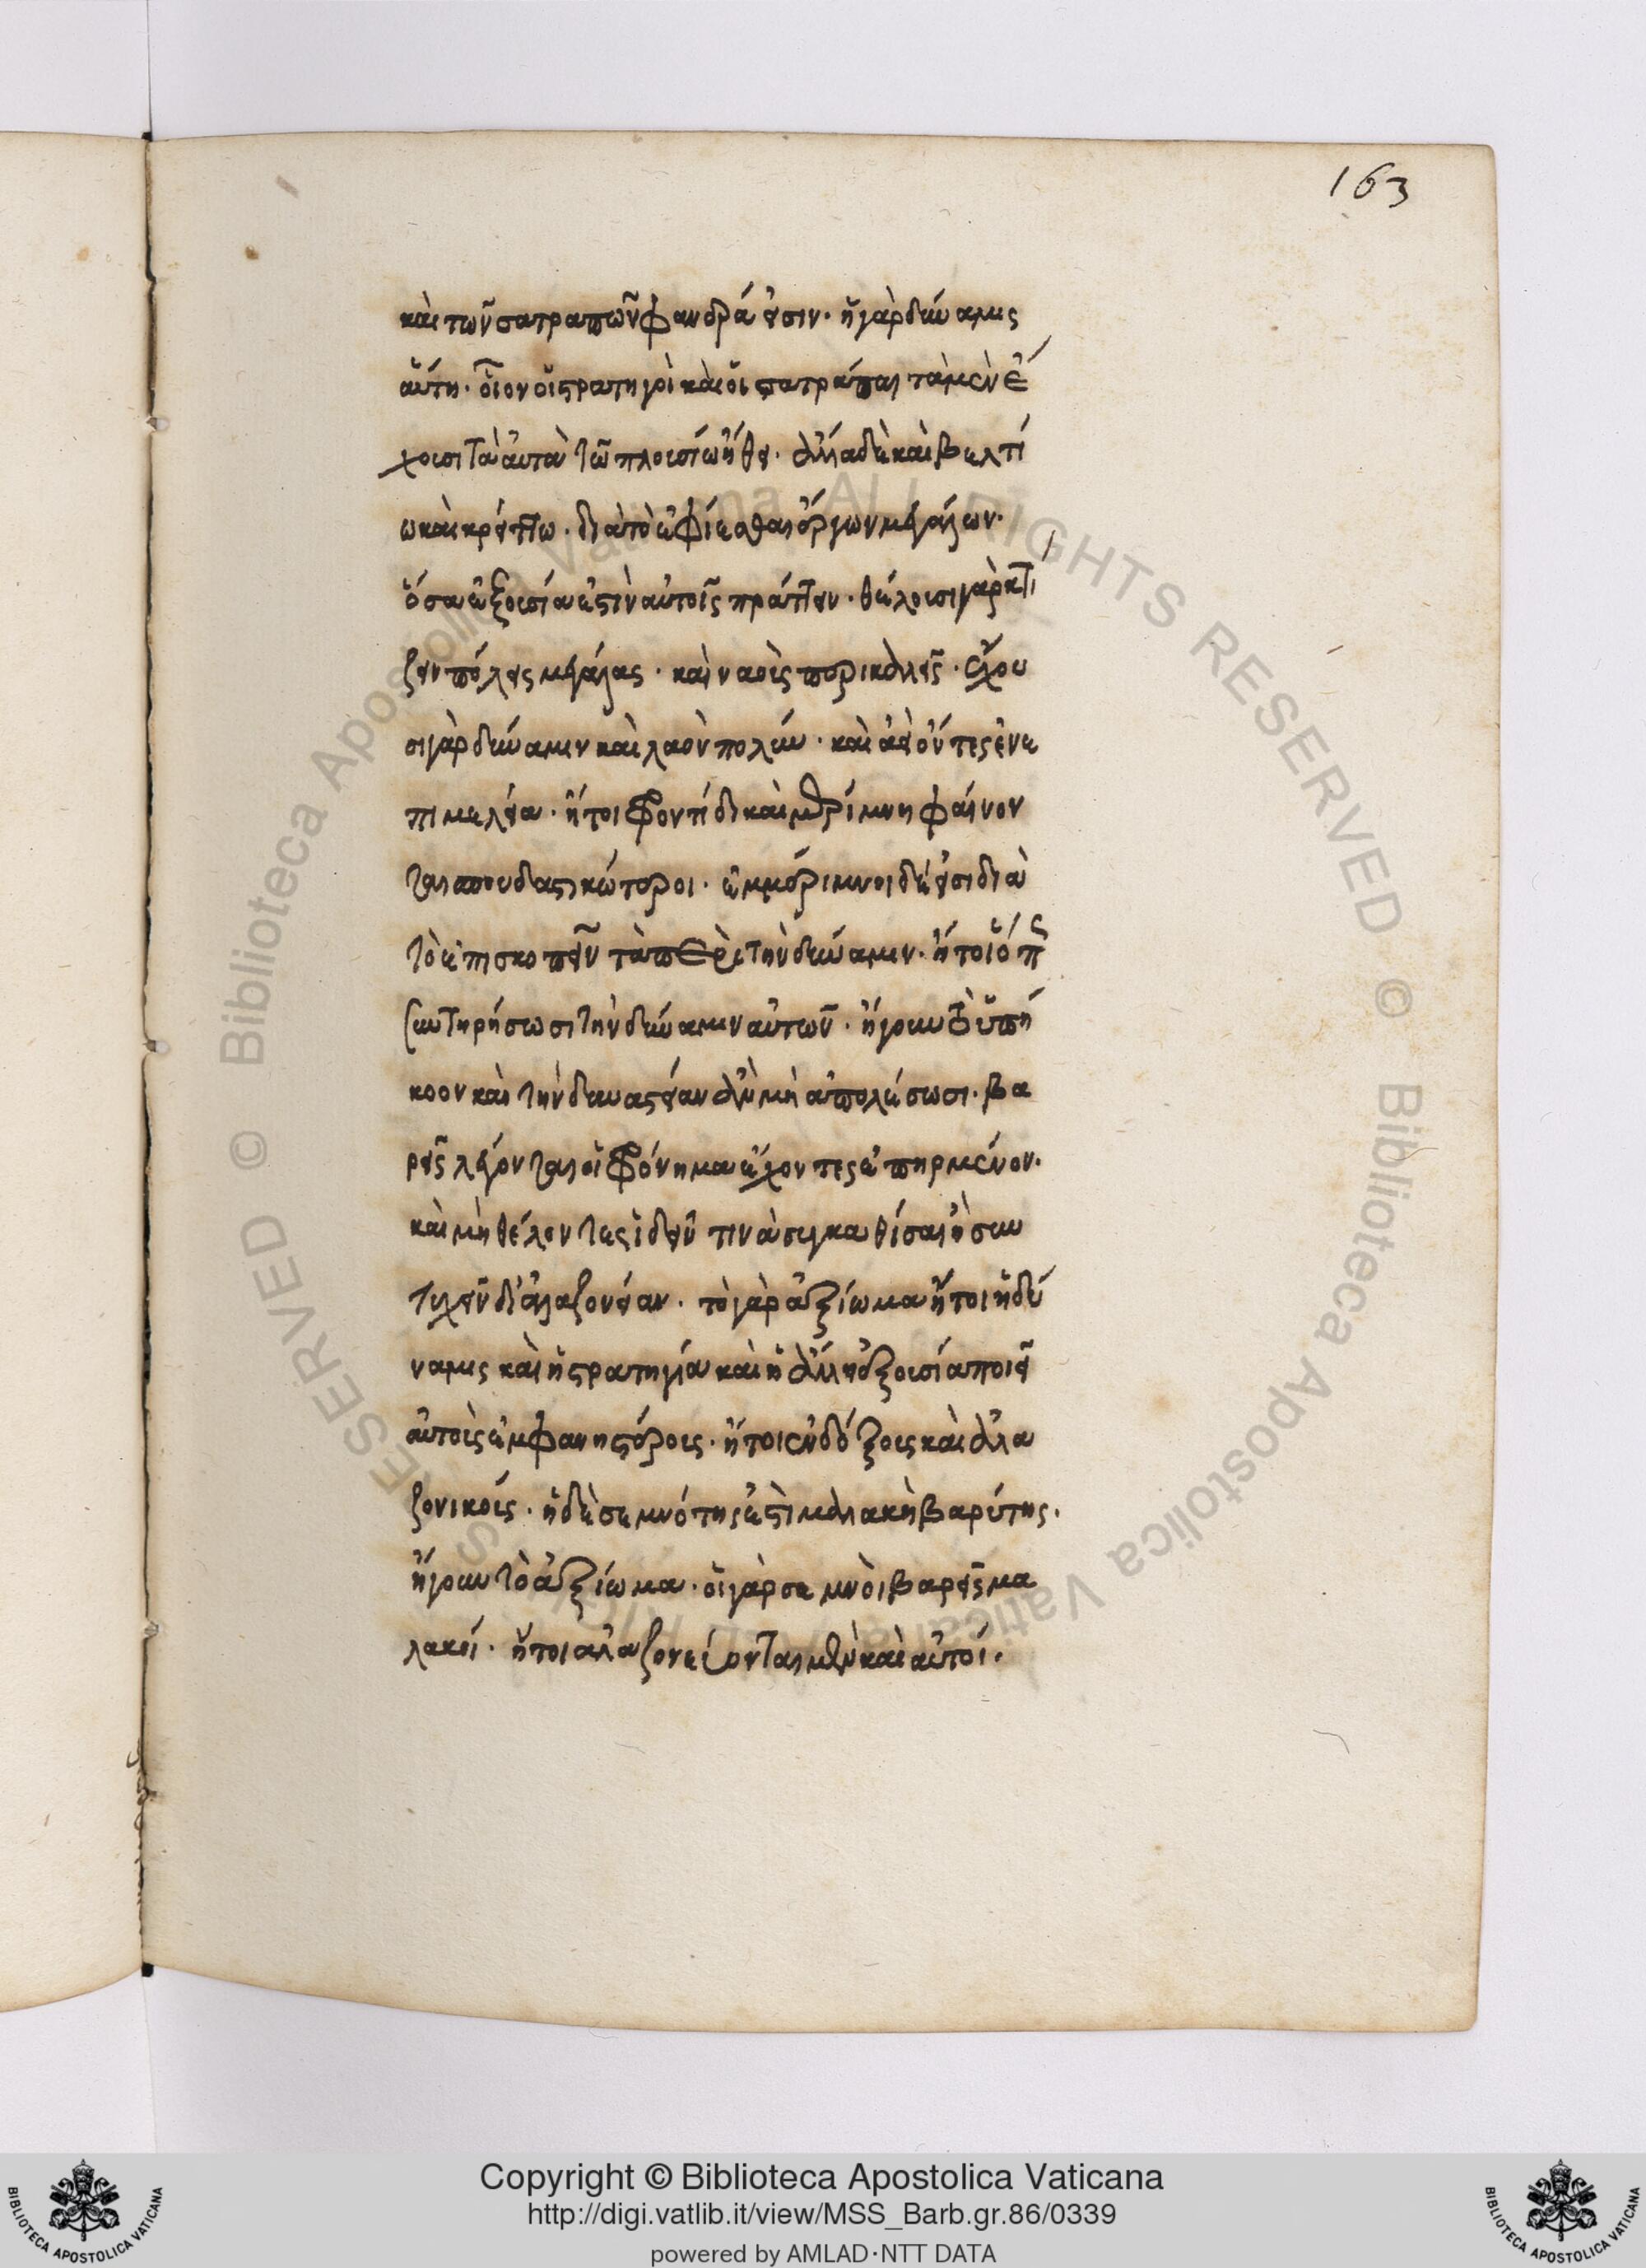 163
καὶ τῶν σατραπῶν φανερά εἰσιν· ἡ γὰρ δύναμις
αὕτη· οἷον οἱ στρατηγοὶ καὶ οἱ σατράπαι τὰ μὲν ἔ
χουσι τὰ αὐτὰ τῷ πλουσίῳ ἤθη· ἀλλὰ δὲ καὶ βελτί
ω καὶ κρείττω· διὰ τὸ ἐφίεσθαι ἔργων μεγάλων·
ὅσα ἐξουσία ἐστὶν αὐτοῖς πράττειν· θέλουσι γὰρ κτί
ζειν πόλεις μεγάλας· καὶ ναοὺς περικαλλεῖς· ἔχου
σι γὰρ δύναμιν καὶ λαὸν πολύν· καὶ ἀεὶ ὄντες ἐν ἐ
πιμελείᾳ· ἤτοι φροντίδι καὶ μερίμνῃ φαίνον
ται σπουδαστικώτεροι· ἐμμέριμνοι δέ εἰσι διὰ
τὸ ἐπισκοπεῖν τὰ περὶ τὴν δύναμιν· ἤτοι ὅπως
συντηρήσωσι τὴν δύναμιν αὐτῶν· ἤγουν τὸ ὑπή
κοον καὶ τὴν δυναστείαν ἵνα μὴ ἀπολέσωσι· βα
ρεῖς λέγονται οἱ φρόνημα ἔχοντες ἐπηρμένον·
καὶ μὴ θέλοντες ἰδεῖν τινὰ συγκαθίσαι ἢ συν
τυχεῖν δι' ἀλαζονείαν· τὸ γὰρ ἀξίωμα ἤτοι ἡ δύ
ναμις καὶ ἡ στρατηγία καὶ ἡ ἄλλη ἐξουσία ποιεῖ
αὐτοὺς ἐμφανεστέρους· ἤτοι ἐνδόξους καὶ ἀλα
ζονικούς· ἡ δὲ σεμνότης ἐστὶ μαλακὴ βαρύτης·
ἤγουν τὸ ἀξίωμα· οἱ γὰρ σεμνοὶ βαρεῖς μα
λακοί· ἤτοι ἀλαζονεύονται μὲν καὶ αὐτοί·
Copyright © Biblioteca Apostolica Vaticana
http://digi.vatlib.it/view/MSS_Barb.gr.86/0339
powered by AMLAD·NTT DATA